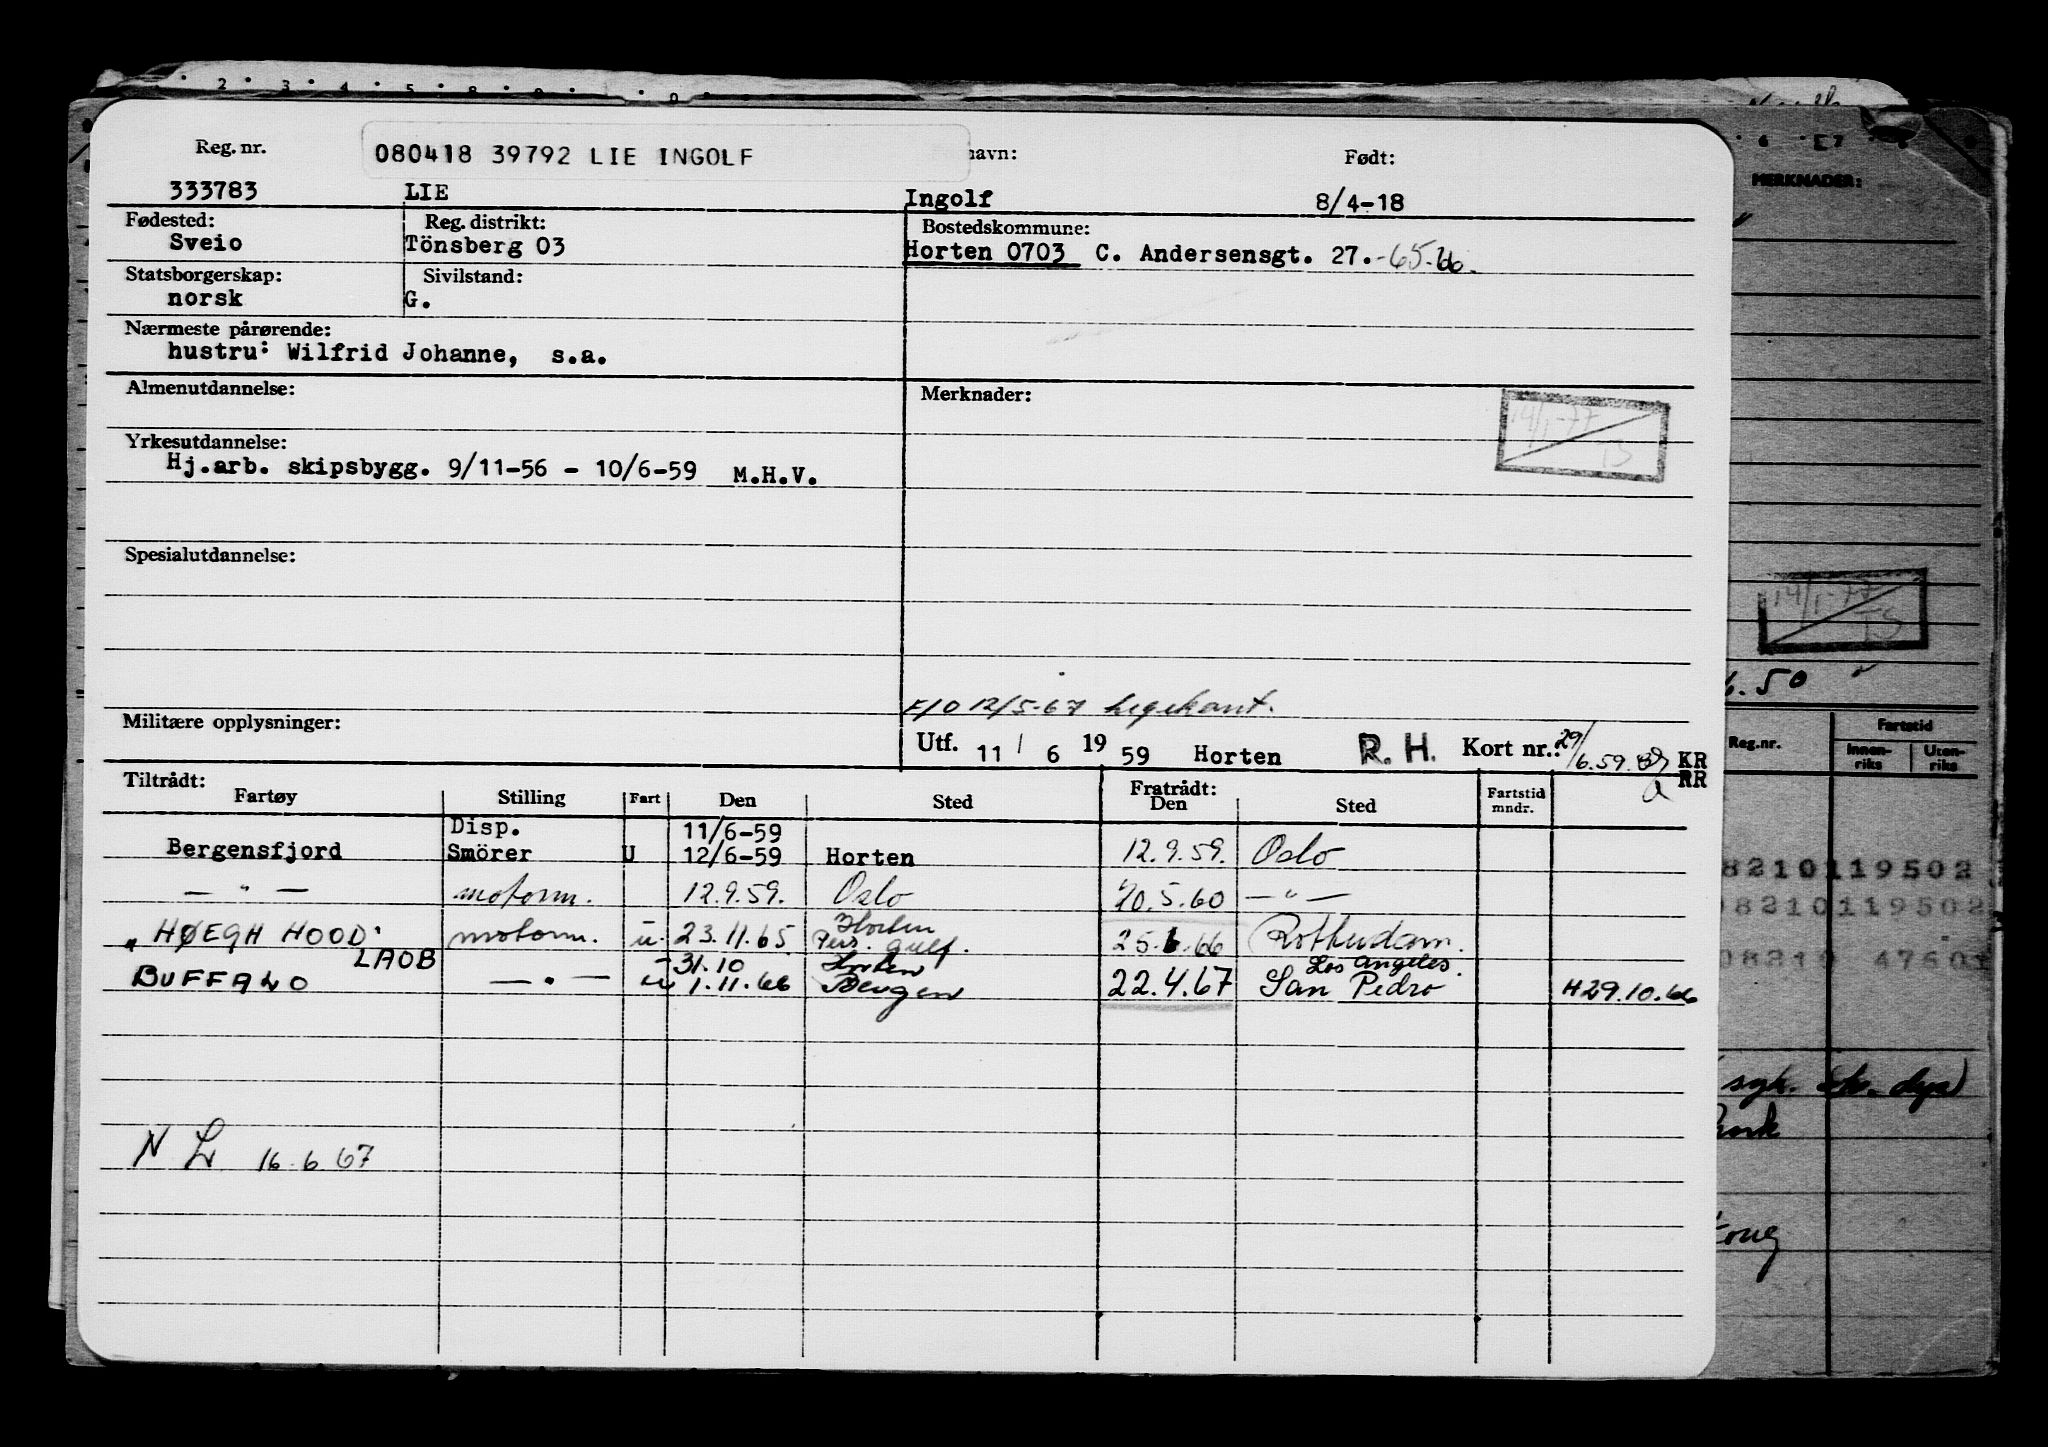 Reg. nr.
080418 39792 LIE INGOLF
navn:
Født:
333783 LIE Ingolf 8/4-18
Fødested: Reg. distrikt: Bostedskommune:
Sveio Tönsberg 03 Horten 0703 C. Andersensgt. 27. -65-66.
Statsborgerskap: Sivilstand:
norsk G.
Nærmeste pårørende:
hustru: Wilfrid Johanne, s.a.
Almenutdannelse: Merknader:
14/1-77
TS
Yrkesutdannelse:
Hj.arb. skipsbygg. 9/11-56 - 10/6-59 M.H.V.
Spesialutdannelse:
F/O 12/5-67 Legekont.
Militære opplysninger:
Utf. 11 / 6 19 59 Horten R. H. Kort nr.: 29/6.59. KR
RR
Tiltrådt: Fratrådt:
Fartøy Stilling Fart Den Sted Den Sted Fartstid mndr.
Disp. 11/6-59
Bergensfjord Smörer U 12/6-59 Horten 12.9.59. Oslo
— " — motorm. 12.9.59. Oslo 20.5.60 — " —
"HØEGH HOOD" motorm. u. 23.11.65 Horten Pers. Gulf. 25.6.66 Rotterdam.
LAOB 31.10 Horten Los Angeles.
BUFFALO — " — u 1.11.66 Bergen 22.4.67 San Pedro H 29.10.66
N L 16.6.67
MERKNADER:
14/1-77
TS
6.50
Reg.nr. Fartstid
Innenriks Utenriks
8210119502
08210119502
08219 47601
syk.